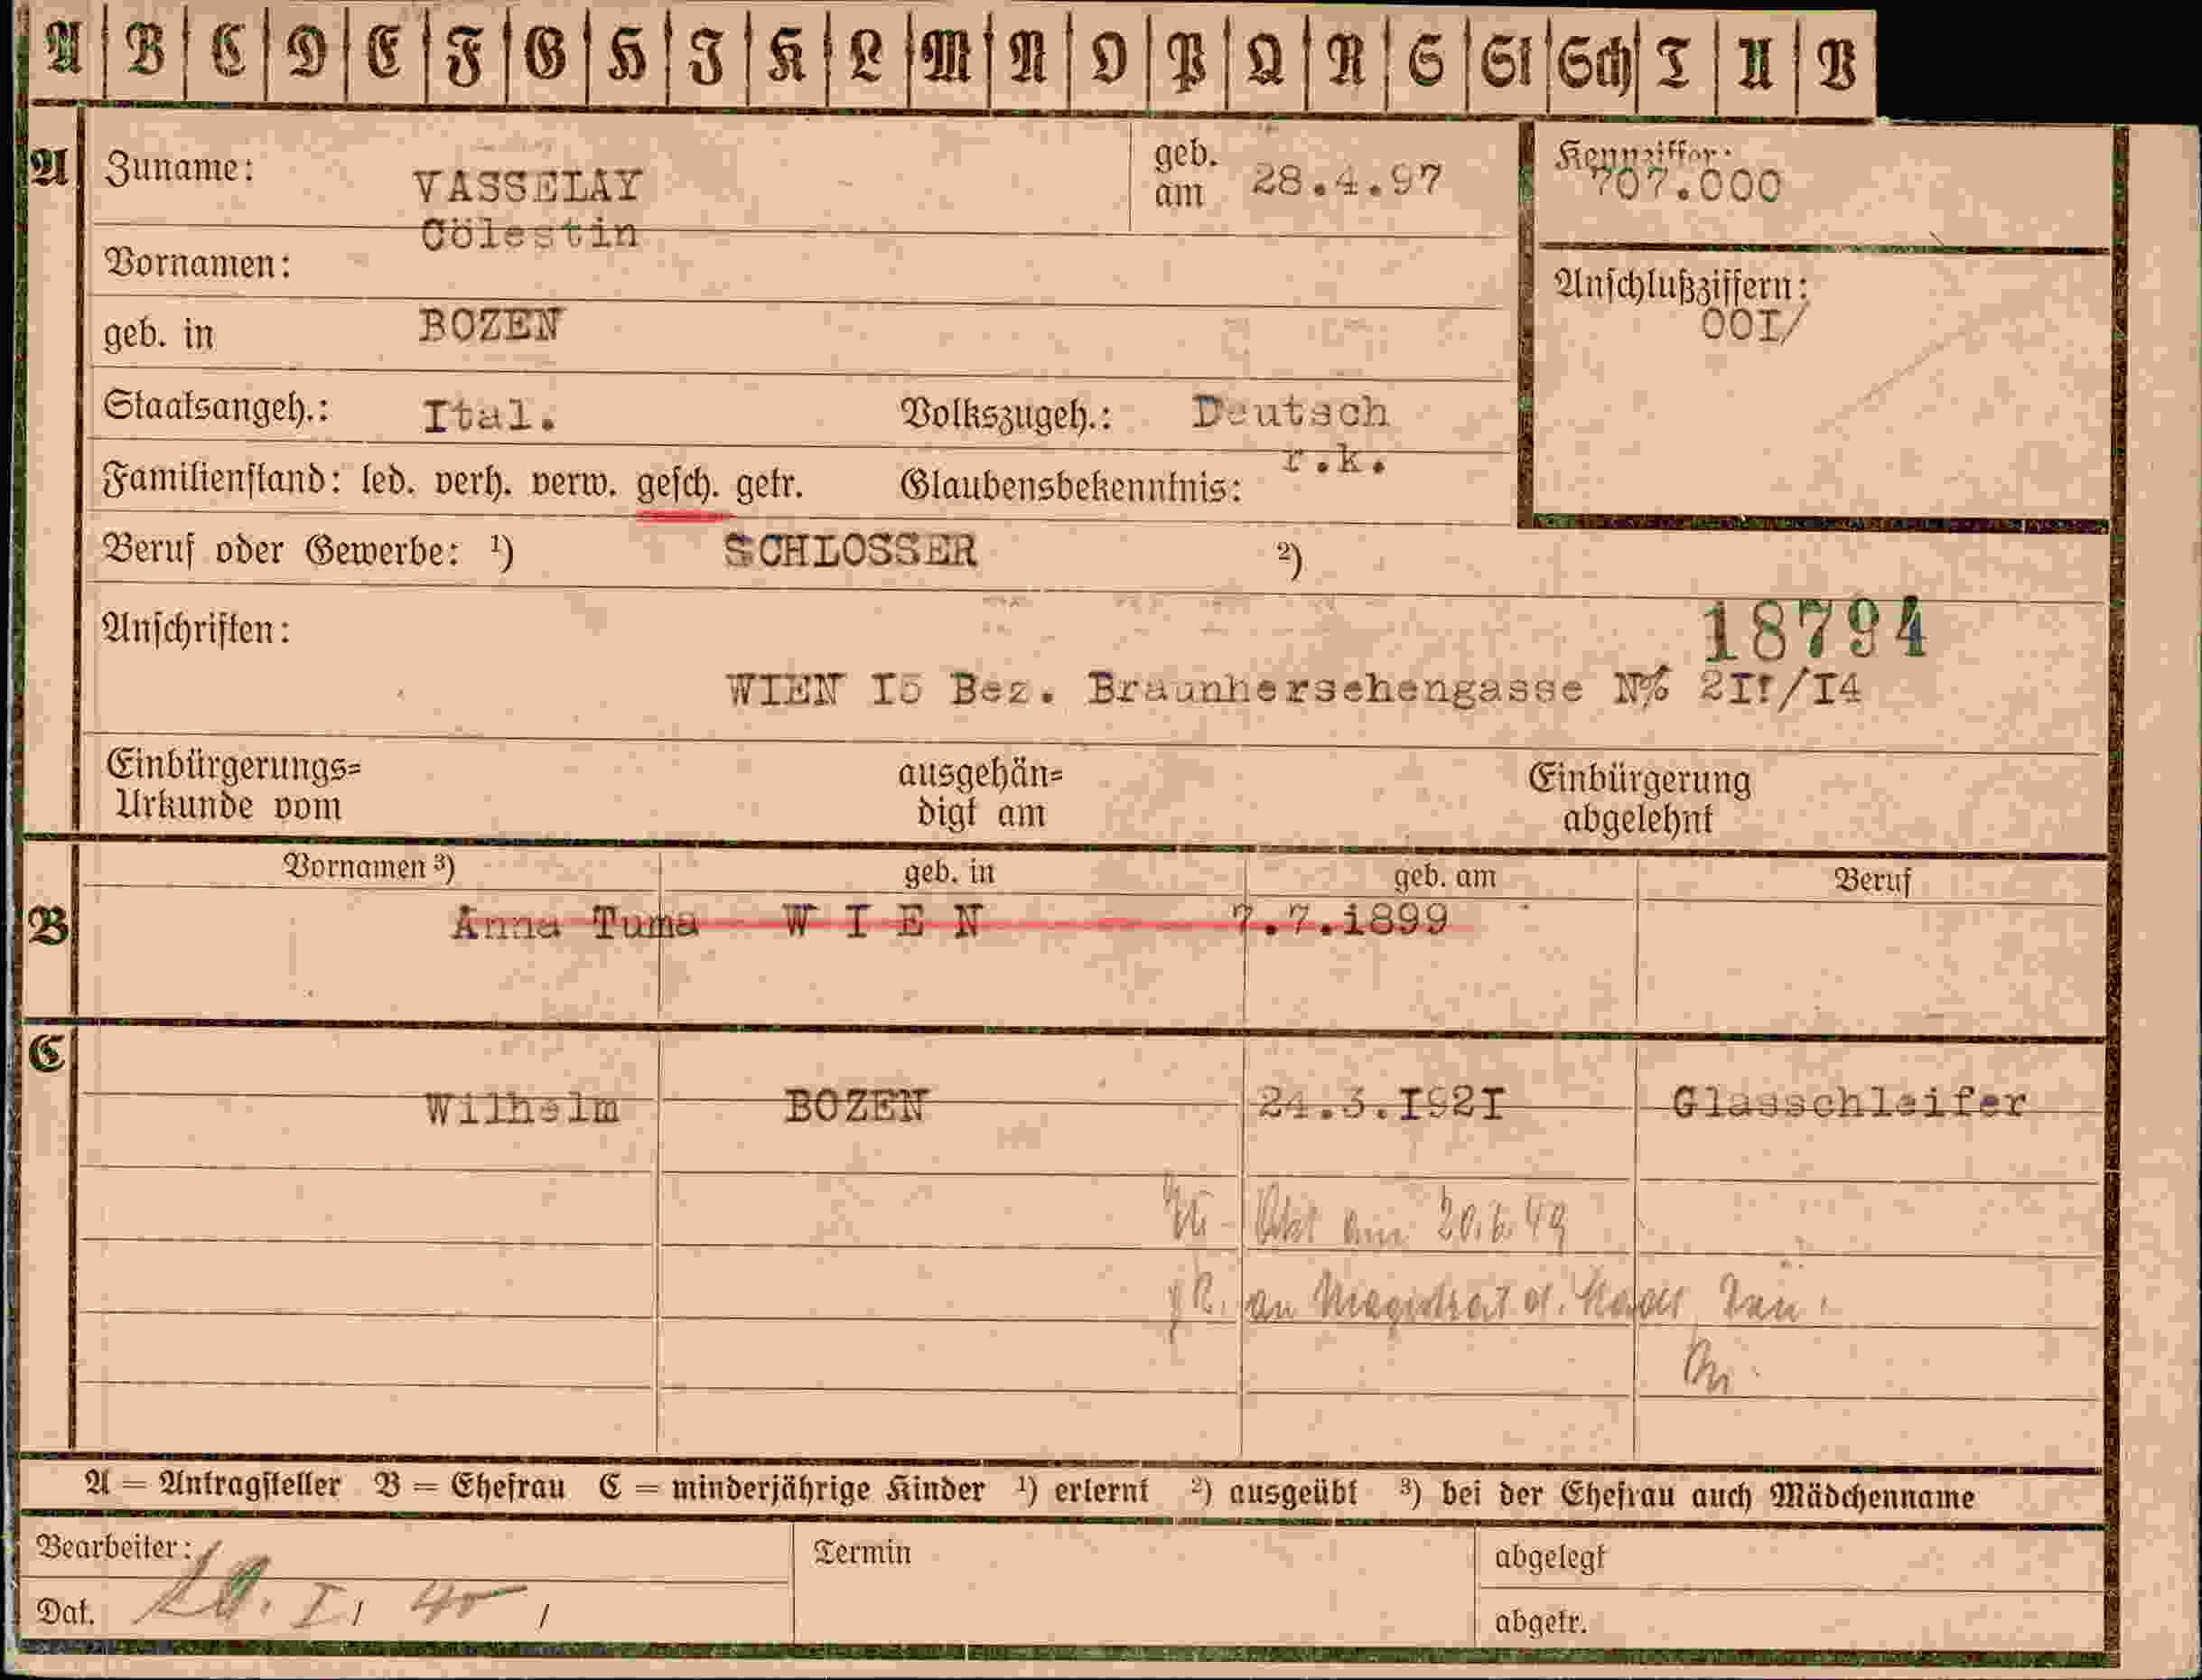 A B C D E F G H I K L M N O P Q R S St Sch T U V
A Zuname: VASSELAY geb. am 28.4.97 Kennziffer: 707.000
Vornamen: Cölestin
Anschlußziffern: 00I/
geb. in BOZEN
Staatsangeh.: Ital. Volkszugeh.: Deutsch
Familienstand: led. verh. verw. gesch. getr. Glaubensbekenntnis: r.k.
Beruf oder Gewerbe: ¹) SCHLOSSER ²)
Anschriften: 18794
WIEN I5 Bez. Braunhersehengasse N% /I4
Einbürgerungs= ausgehän= Einbürgerung
Urkunde vom digt am abgelehnt
Vornamen ³) geb. in geb. am Beruf
B Anna Tuma W I E N 7.7.1899
C
Wilhelm BOZEN 24.3.I92I Glasschleifer
Akt am 20.6.49
an Magistrat d.
A = Antragsteller B = Ehefrau C = minderjährige Kinder ¹) erlernt ²) ausgeübt ³) bei der Ehefrau auch Mädchenname
Bearbeiter: Termin abgelegt
Dat. I. 40 abgetr.